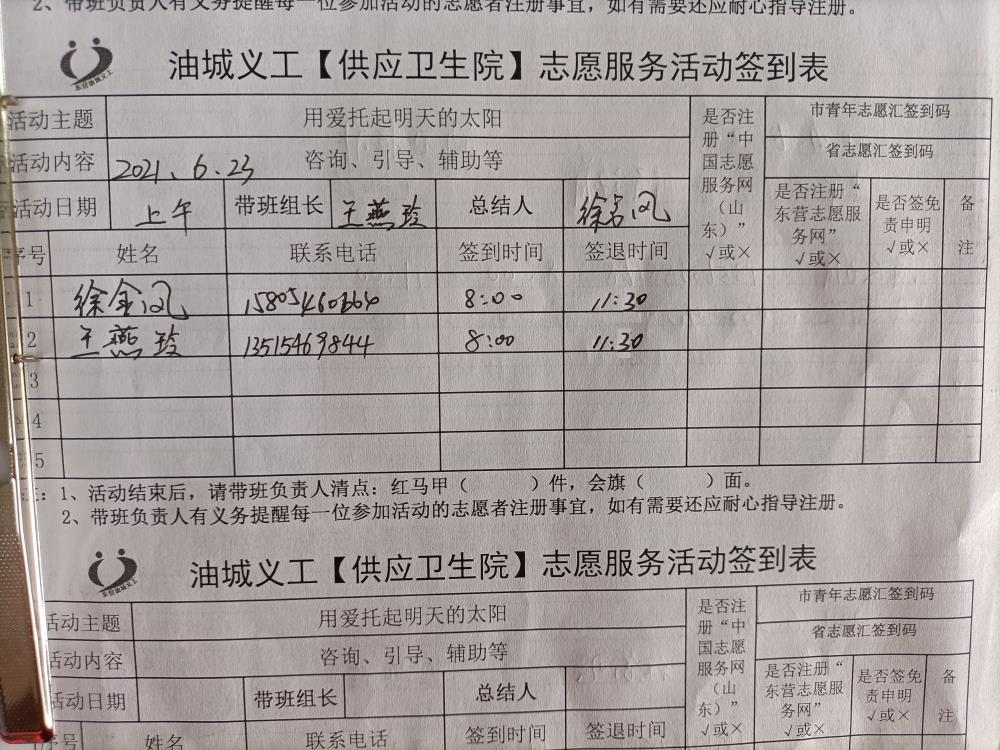 2、带班负责人有义务提醒每一位参加活动的志愿者注册事宜，如有需要还应耐心指导注册。
东营油城义工
油城义工【供应卫生院】志愿服务活动签到表
活动主题 用爱托起明天的太阳 是否注册“中国志愿服务网（山东）”√或× 市青年志愿汇签到码
活动内容 2021.6.23 咨询、引导、辅助等 省志愿汇签到码
活动日期 上午 带班组长 王燕玲 总结人 徐金凤 是否注册“东营志愿服务网”√或× 是否签免责申明√或× 备注
序号 姓名 联系电话 签到时间 签退时间
1 徐金凤 15805460664 8:00 11:30
2 王燕玲 13515469844 8:00 11:30
3
4
5
注：1、活动结束后，请带班负责人清点：红马甲（ ）件，会旗（ ）面。
2、带班负责人有义务提醒每一位参加活动的志愿者注册事宜，如有需要还应耐心指导注册。
东营油城义工
油城义工【供应卫生院】志愿服务活动签到表
活动主题 用爱托起明天的太阳 是否注册“中国志愿服务网（山东）”√或× 市青年志愿汇签到码
活动内容 咨询、引导、辅助等 省志愿汇签到码
活动日期 带班组长 总结人 是否注册“东营志愿服务网”√或× 是否签免责申明√或× 备注
序号 姓名 联系电话 签到时间 签退时间